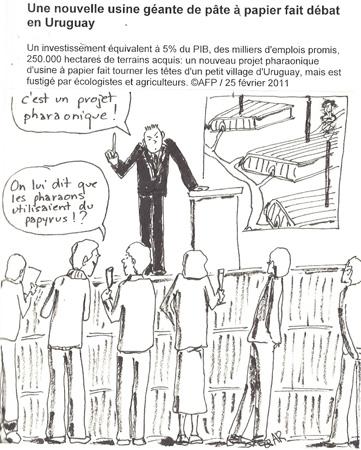 Une nouvelle usine géante de pâte à papier fait débat
en Uruguay
Un investissement équivalent à 5% du PIB, des milliers d'emplois promis,
250.000 hectares de terrains acquis: un nouveau projet pharaonique
d'usine à papier fait tourner les têtes d'un petit village d'Uruguay, mais est
fustigé par écologistes et agriculteurs. ©AFP / 25 février 2011
c'est un projet
pharaonique!
On lui dit que
les pharaons
utilisaient du
papyrus!?